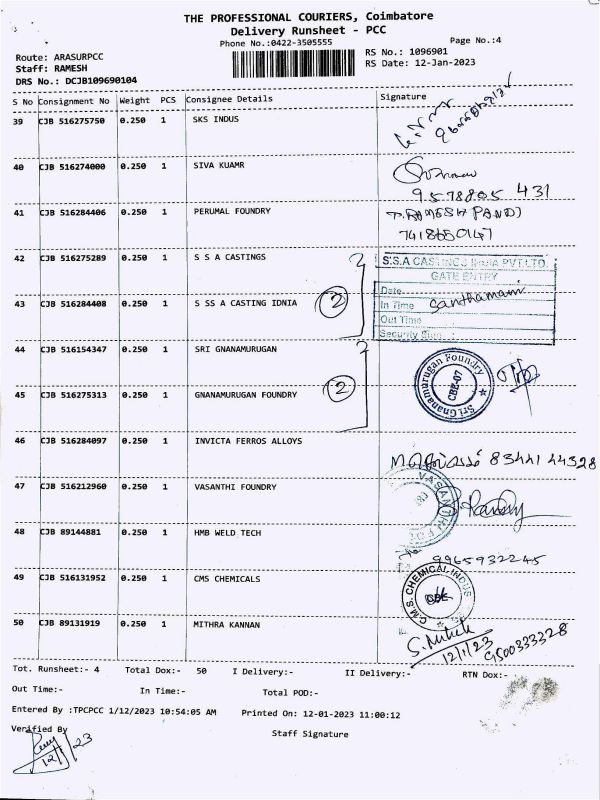 THE PROFESSIONAL COURIERS, Coimbatore
Delivery Runsheet - PCC
Phone No.:0422-3505555
Page No.:4
Route: ARASURPCC
RS No.: 1096901
Staff: RAMESH
RS Date: 12-Jan-2023
DRS No.: DCJB109690104
S No Consignment No Weight PCS Consignee Details Signature
39 CJB 516275750 0.250 1 SKS INDUS
40 CJB 516274000 0.250 1 SIVA KUAMR
9578805 431
41 CJB 516284406 0.250 1 PERUMAL FOUNDRY T.RAMESH PANDI
7418650147
42 CJB 516275289 0.250 1 S S A CASTINGS
S.S.A CASTINGS INDIA PVT.LTD.
GATE ENTRY
Date
43 CJB 516284408 0.250 1 S SS A CASTING IDNIA 2
In Time Santhamani
Out Time
Security Sign
44 CJB 516154347 0.250 1 SRI GNANAMURUGAN
45 CJB 516275313 0.250 1 GNANAMURUGAN FOUNDRY 2
Sri Gnanamurugan Foundry
CBE-07
46 CJB 516284097 0.250 1 INVICTA FERROS ALLOYS
83441 44328
47 CJB 516212960 0.250 1 VASANTHI FOUNDRY
VASANTHI
48 CJB 89144881 0.250 1 HMB WELD TECH
9965932245
49 CJB 516131952 0.250 1 CMS CHEMICALS
C.M.S. CHEMICAL INDUS
CBE
50 CJB 89131919 0.250 1 MITHRA KANNAN
12/1/23
9500333328
Tot. Runsheet:- 4 Total Dox:- 50 I Delivery:- II Delivery:- RTN Dox:-
Out Time:- In Time:- Total POD:-
Entered By :TPCPCC 1/12/2023 10:54:05 AM Printed On: 12-01-2023 11:00:12
Verified By
Staff Signature
12/1/23